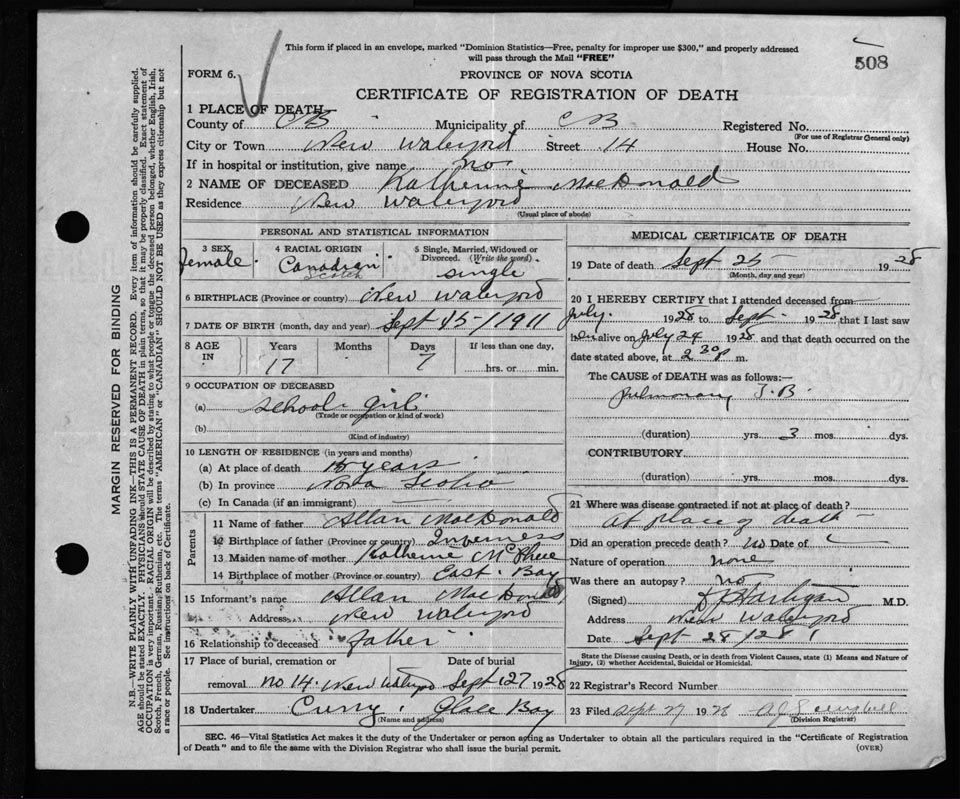 This form if placed in an envelope, marked "Dominion Statistics—Free, penalty for improper use $300," and properly addressed
will pass through the Mail "FREE"
508
FORM 6.
PROVINCE OF NOVA SCOTIA
CERTIFICATE OF REGISTRATION OF DEATH
1 PLACE OF DEATH—
County of CB Municipality of CB Registered No.
(For use of Registrar General only)
City or Town New Waterford Street 14 House No.
If in hospital or institution, give name no
2 NAME OF DECEASED Katherine MacDonald
Residence New Waterford
(Usual place of abode)
PERSONAL AND STATISTICAL INFORMATION
3 SEX
female.
4 RACIAL ORIGIN
Canadian
Scotch
5 Single, Married, Widowed or
Divorced. (Write the word)
single
6 BIRTHPLACE (Province or country) New Waterford
7 DATE OF BIRTH (month, day and year) Sept 15-/1911
8 AGE IN
Years Months Days If less than one day,
17 7 hrs. or min.
9 OCCUPATION OF DECEASED
(a) school girl
(Trade or occupation or kind of work)
(b)
(Kind of industry)
10 LENGTH OF RESIDENCE (in years and months)
(a) At place of death years
(b) In province Nova Scotia
(c) In Canada (if an immigrant)
Parents
11 Name of father Allan MacDonald
12 Birthplace of father (Province or country) Inverness
13 Maiden name of mother Katherine McPhee
14 Birthplace of mother (Province or country) East Bay
15 Informant's name Allan MacDonald
Address New Waterford
16 Relationship to deceased father
17 Place of burial, cremation or Date of burial
removal no 14. New Waterford Sept 27 1928
18 Undertaker Curry. Glace Bay
(Name and address)
MEDICAL CERTIFICATE OF DEATH
19 Date of death Sept 25 1928
(Month, day and year)
20 I HEREBY CERTIFY that I attended deceased from
July. 1928 to Sept. 1928 that I last saw
her alive on July 24 1928 and that death occurred on the
date stated above, at 2 30 P m.
The CAUSE of DEATH was as follows:—
Pulmonary T.B.
(duration) yrs. 3 mos. dys.
CONTRIBUTORY
(duration) yrs. mos. dys.
21 Where was disease contracted if not at place of death?
At place of death
Did an operation precede death? no Date of
Nature of operation none
Was there an autopsy? no
(Signed) M.D.
Address New Waterford
Date Sept 28/28
State the Disease causing Death, or in death from Violent Causes, state (1) Means and Nature of
Injury, (2) whether Accidental, Suicidal or Homicidal.
22 Registrar's Record Number
23 Filed Sept 27 1928
(Division Registrar)
SEC. 46—Vital Statistics Act makes it the duty of the Undertaker or person acting as Undertaker to obtain all the particulars required in the "Certificate of Registration
of Death" and to file the same with the Division Registrar who shall issue the burial permit.
(OVER)
MARGIN RESERVED FOR BINDING
N.B.—WRITE PLAINLY WITH UNFADING INK—THIS IS A PERMANENT RECORD. Every item of information should be carefully supplied.
AGE should be stated EXACTLY. PHYSICIANS should STATE CAUSE OF DEATH in plain terms, so that it may be properly classified. Exact statement of
OCCUPATION is very important. RACIAL ORIGIN will be described by stating to what people or tongue the deceased person belonged, whether English, Irish,
Scotch, French, German, Russian, Ruthenian, etc. The terms "AMERICAN" or "CANADIAN" SHOULD NOT BE USED as they express citizenship but not
a race or people. See instructions on back of Certificate.